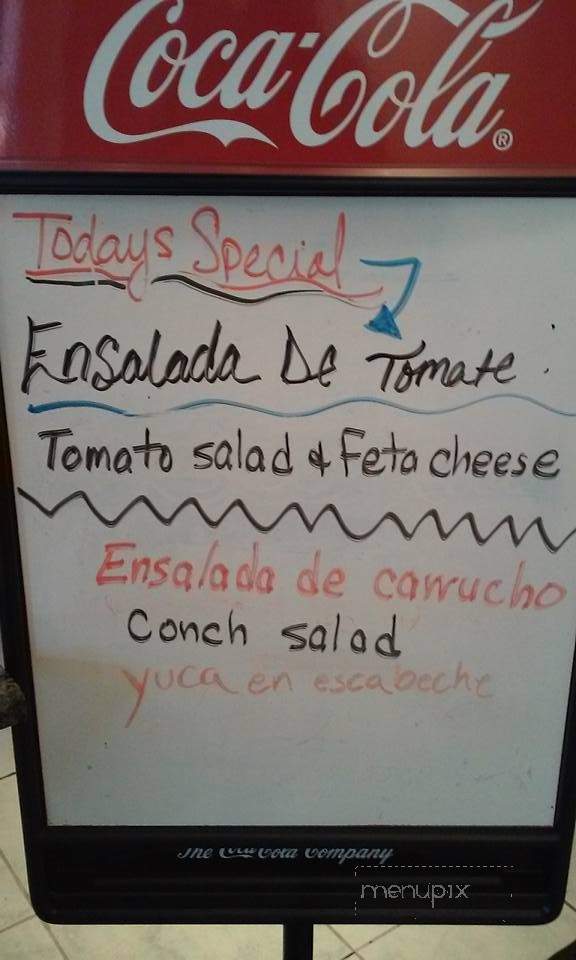 Coca-Cola®
Todays Special
Ensalada De Tomate
Tomato salad & Feta cheese
Ensalada de carrucho
Conch salad
yuca en escabeche
The Coca-Cola Company
menupix